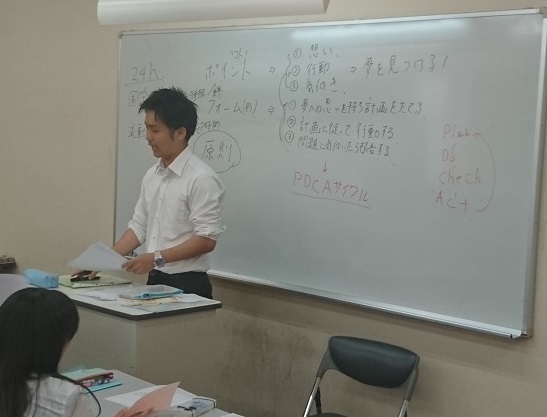 24h.
ポイント ⇒
① 思い
② 行動
③ 気付き
⇒ 夢を見つける!
フォーム
原則
① 夢への思いを持ち計画をたてる
② 計画に従って行動する
③ 問題に気付いたら改善する
↓
PDCAサイクル
Plan
Do
Check
Act